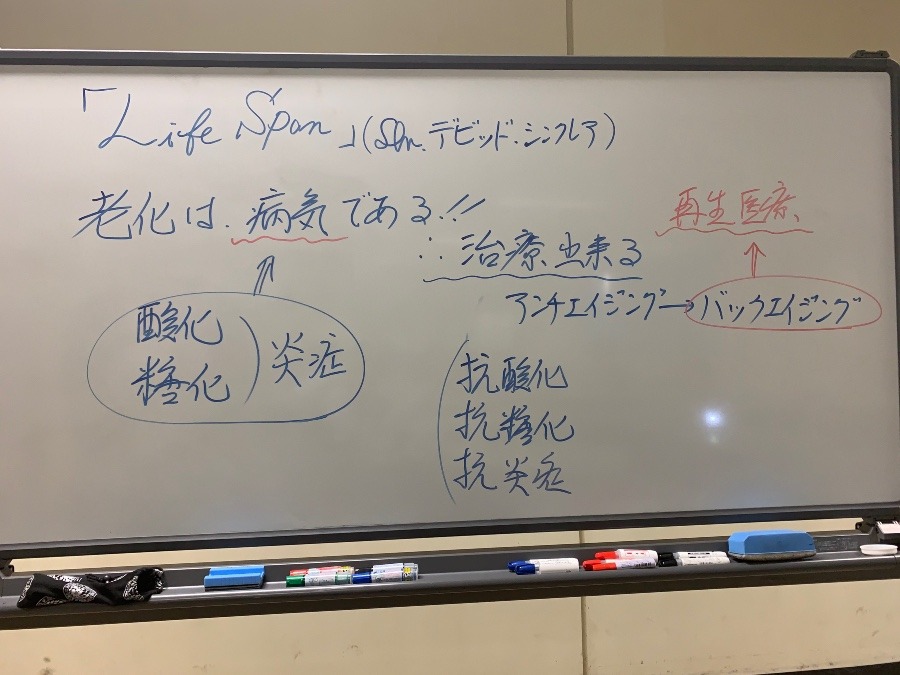 「Life Span」(Dr.デビッド・シンクレア)
老化は、病気である!!
再生医療
∴治療出来る
アンチエイジング→バックエイジング
酸化
糖化
炎症
抗酸化
抗糖化
抗炎症